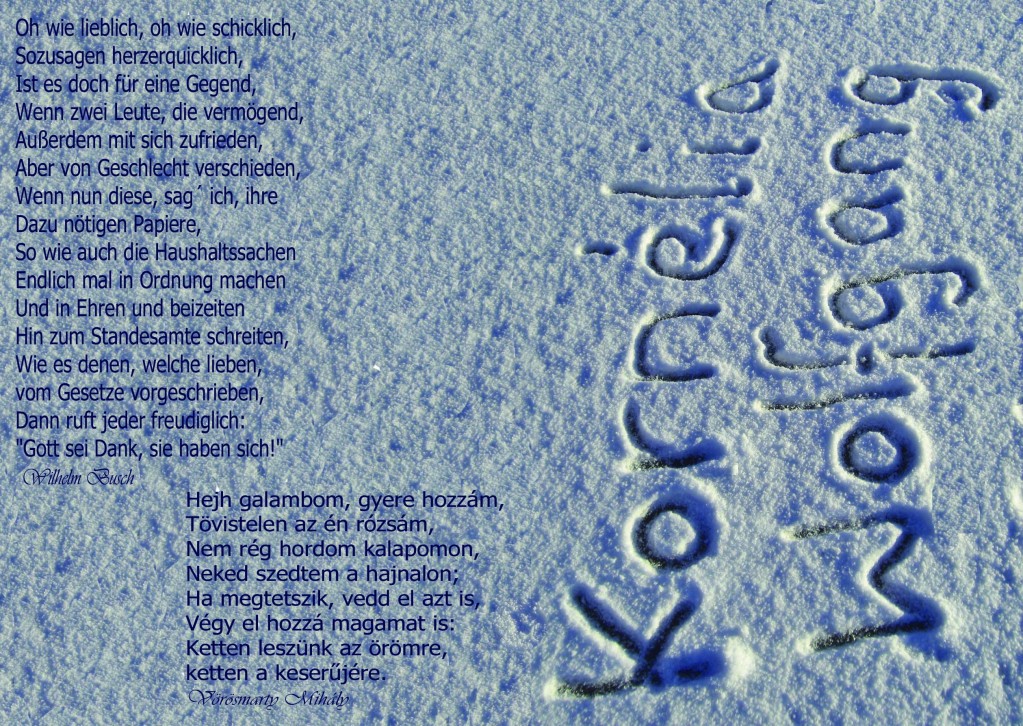 Oh wie lieblich, oh wie schicklich,
Sozusagen herzerquicklich,
Ist es doch für eine Gegend,
Wenn zwei Leute, die vermögend,
Außerdem mit sich zufrieden,
Aber von Geschlecht verschieden,
Wenn nun diese, sag´ ich, ihre
Dazu nötigen Papiere,
So wie auch die Haushaltssachen
Endlich mal in Ordnung machen
Und in Ehren und beizeiten
Hin zum Standesamte schreiten,
Wie es denen, welche lieben,
vom Gesetze vorgeschrieben,
Dann ruft jeder freudiglich:
"Gott sei Dank, sie haben sich!"
Wilhelm Busch
Hejh galambom, gyere hozzám,
Tövistelen az én rózsám,
Nem rég hordom kalapomon,
Neked szedtem a hajnalon;
Ha megtetszik, vedd el azt is,
Végy el hozzá magamat is:
Ketten leszünk az örömre,
ketten a keserűjére.
Vörösmarty Mihály
Kornélia
Wolfgang